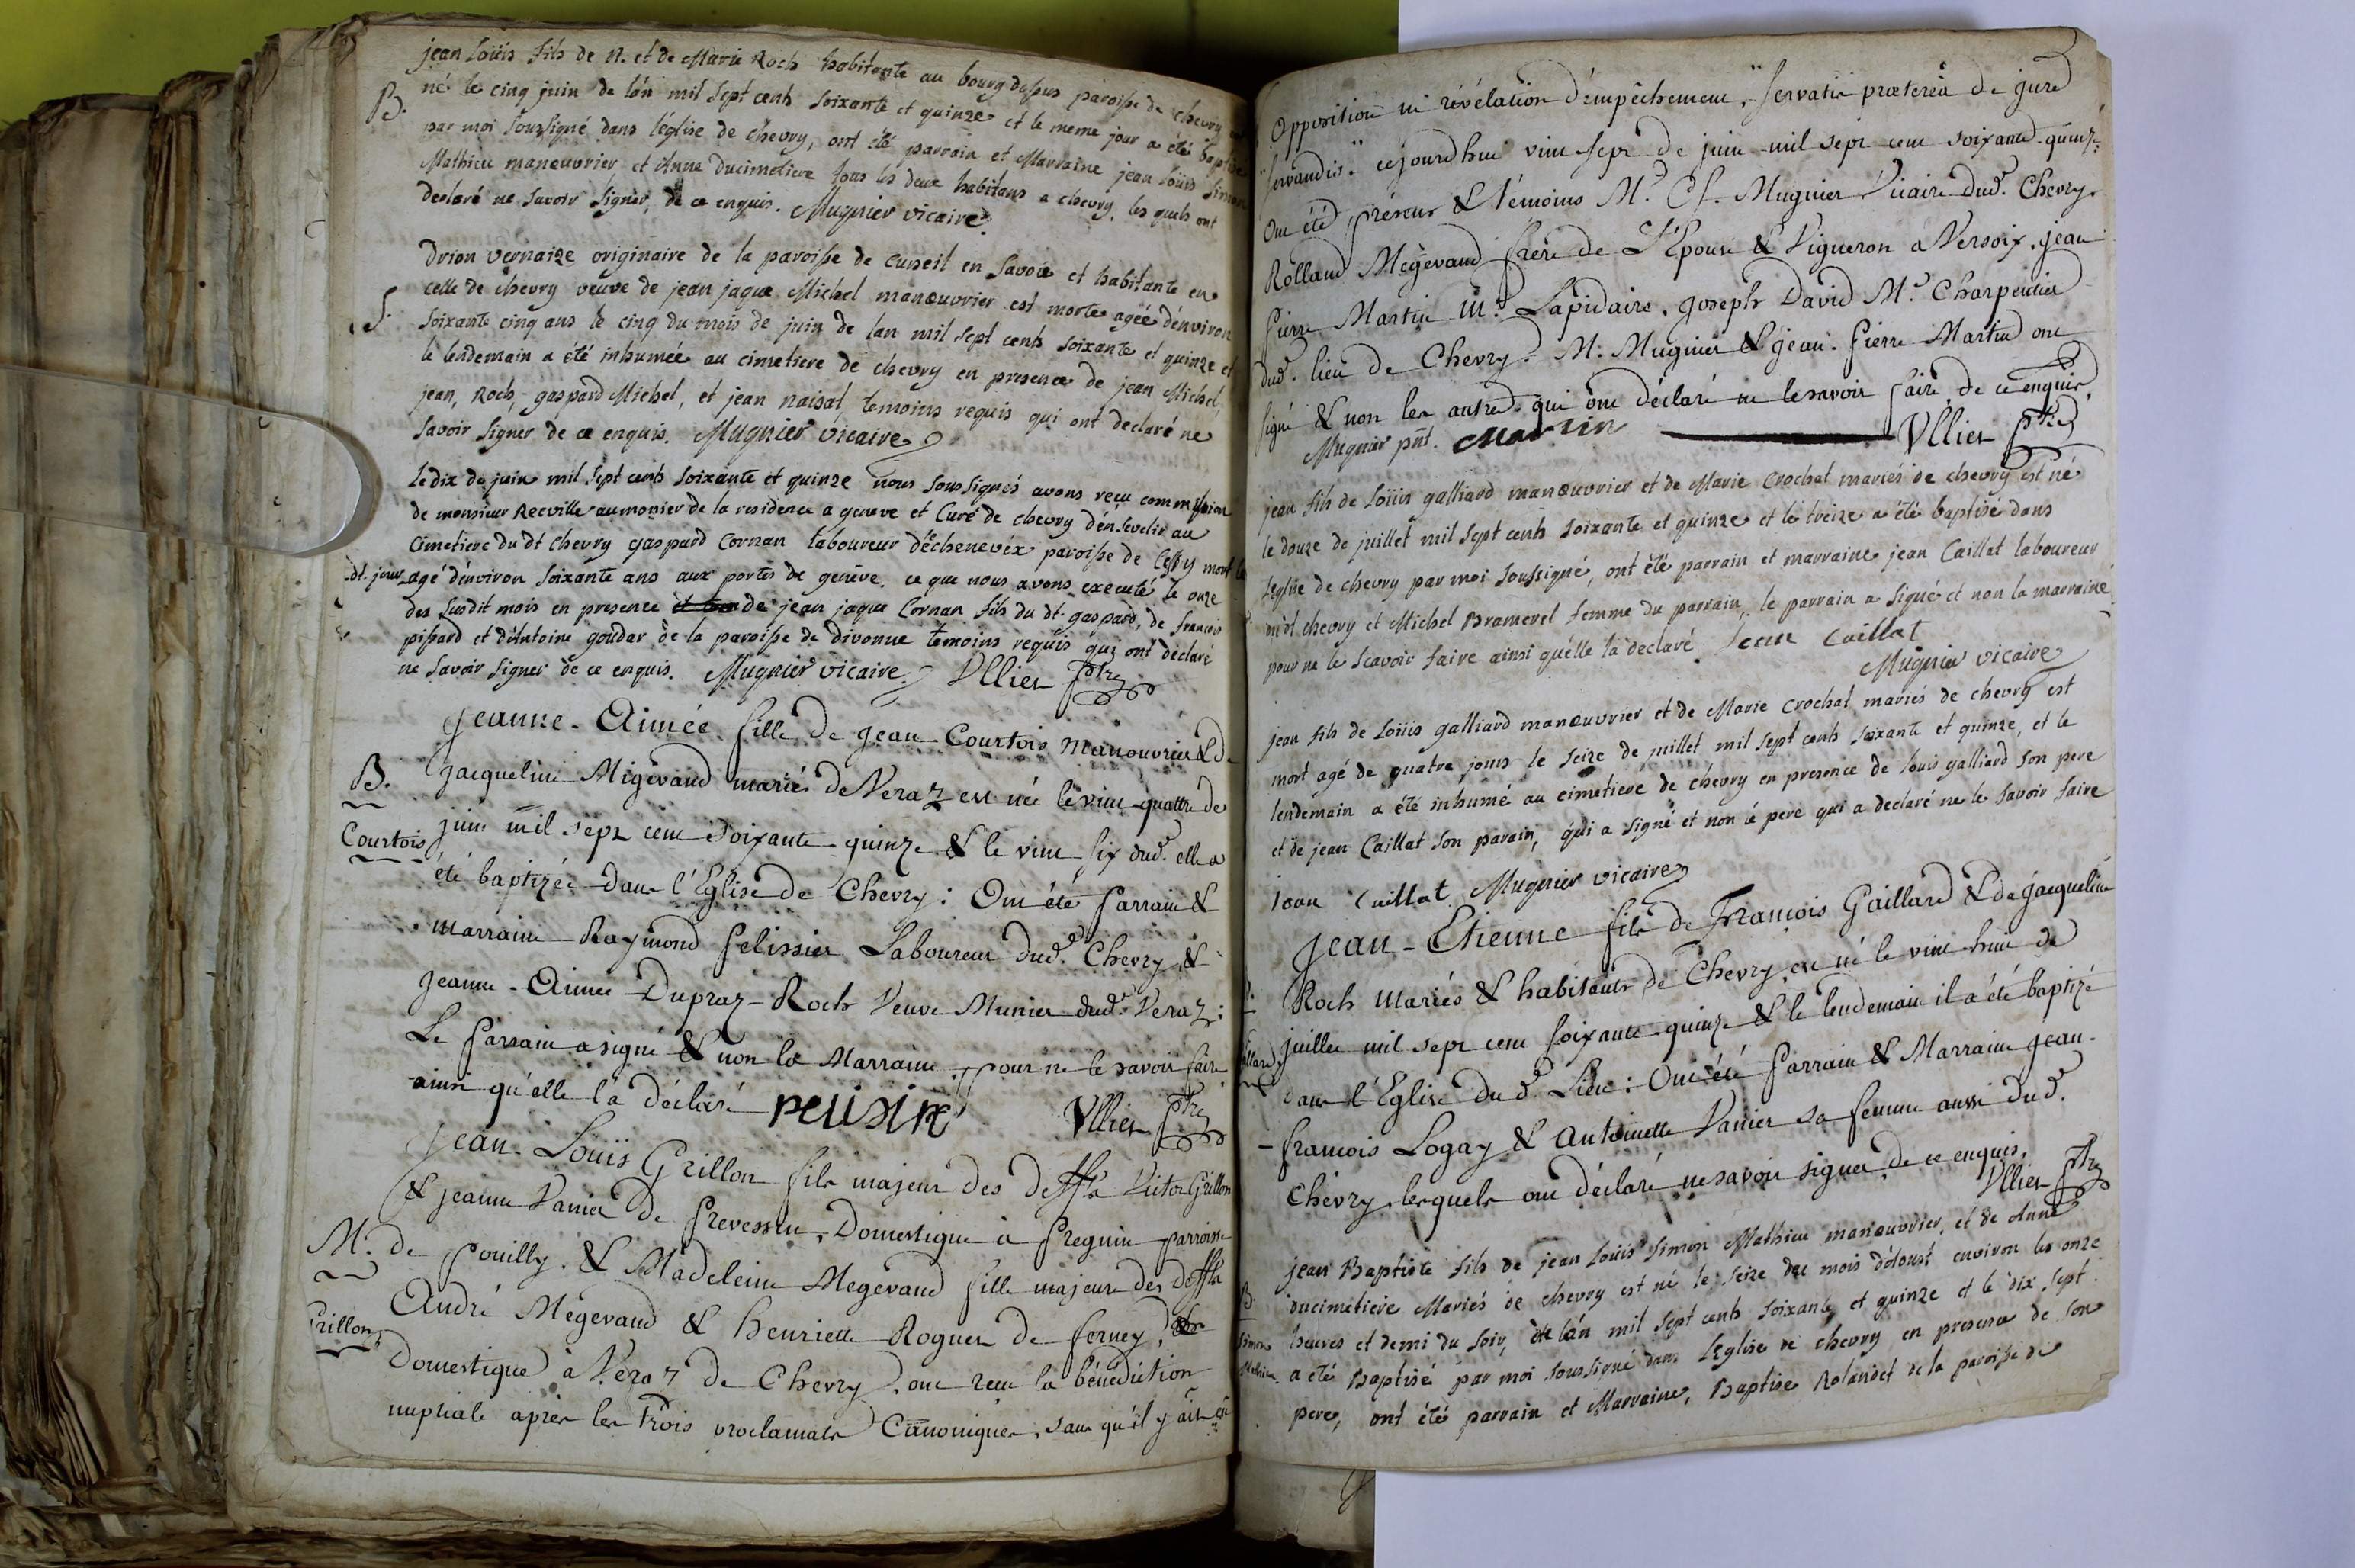 jean Loüis fils de N. et de Marie Roch habitante au bourg dessus paroisse de chevry
B.
né le cinq juin de l'an mil sept cents soixante et quinze et le meme jour a été baptisé
par moi soussigné dans l'église de chevry, ont été parrain et Marraine jean Loüis simon
Mathieu manœuvrier et Anne Ducimetiere tous les deux habitans a chevry, les quels ont
declaré ne savoir signer, de ce enquis. Mugnier vicaire
Drion vernaize originaire de la paroisse de en Savoie et habitante en
celle de chevry veuve de jean jaque Michel manœuvrier est morte agée d'environ
S.
soixante cinq ans le cinq du mois de juin de lan mil sept cents soixante et quinze et
le lendemain a été inhumée au cimetiere de chevry en presence de jean Michel,
jean, Roch, gaspard Michel, et jean naisat temoins requis qui ont declaré ne
savoir signer de ce enquis. Mugnier vicaire
Le dix de juin mil sept cents soixante et quinze nous soussignés avons reçu commission
de monsieur Recville aumonier de la residence a geneve et Curé de chevry d'ensevelir au
Cimetiere du dt chevry gaspard Cornan laboureur d'échenevéx paroisse de Cessy mort le
dt. jour agé d'environ soixante ans aux portes de genève. ce que nous avons executé le onze
des susdit mois en presence de jean jaque Cornan fils du dt. gaspard, de francois
pissard et d'Antoine goudar de la paroisse de divonne temoins requis qui ont déclaré
ne savoir signer de ce enquis. Mugnier vicaire Ullier ptre
Jeanne-Aimée fille de Jean Courtois Manouvrier & de
B.
Jacqueline Migevand mariés de Veraz est née le vint-quattre de
Courtois
juin mil sept cent soixante-quinze & le vint-six dud. elle a
été baptizée dans l'Eglise de Chevry: Ont été Parrain &
Marraine Raymond Pelissier Laboureur dud. Chevry &
Jeanne-Aimée Dupraz-Roch Veuve Munier dud. Veraz:
Le Parrain a signé & non la Marraine pour ne le savoir faire
ainsi qu'elle l'a déclaré Ullier Ptre
Jean-Loüis Grillon fils majeur des deffts Victor Grillon
& Jeanne Vanier de Prevessin, Domestique à Pregnin parroisse
M.
de Pouilly. & Madeleine Megevand fille majeure des deffts
André Mégevand & henriette Roguet de ferney,
Grillon
Domestique à Veraz de Chevry, ont reçu la bénédiction
nuptiale après les trois proclamats Canoniques, sans qu'il y ait eû
Opposition ni révélation d'empêchement, "servatis prætereà de jure
"servandis." cejourdhui vint sept de juin mil sept cent soixante-quinze
Ont été présens & témoins M.r Cl. Mugnier Vicaire dud. Chevry
Rolland Megevand frère de L'Epouse & Vigneron a Versoix, Jean-
Pierre Martin M.e Lapidaire, Joseph David M.e Charpentier
dud. lieu de Chevry. M. Mugnier & Jean-Pierre Martin ont
signé & non les autres qui ont déclaré ne le savoir faire de ce enquis.
Mugnier pnt. Martin Ullier Ptre
jean fils de Loüis galliard manœuvrier et de Marie Crochat mariés de chevry est né
le douze de juillet mil sept cents soixante et quinze et le treize a été baptisé dans
leglise de chevry par moi soussigné, ont été parrain et marraine jean Caillat laboureur
chevry et Michel Bramerel femme du parrain, le parrain a signé et non la marraine
pour ne le scavoir faire ainsi qu'elle la declaré Jean Caillat
Mugnier vicaire
jean fils de Loüis galliard manœuvrier et de Marie Crochat mariés de chevry est
mort agé de quatre jours le seize de juillet mil sept cents soixante et quinze, et le
lendemain a été inhumé au cimetiere de chevry en presence de louis galliard son pere
et de jean Caillat son parain, qui a signé et non le pere qui a declaré ne le savoir faire
Jean Caillat Mugnier vicaire
Jean-Etienne fils de François Gaillard & de Jacqueline
Roch Mariés & habitants de Chevry, est né le vint-huit de
juillet mil sept cent soixante-quinze & le lendemain il a été baptizé
dans l'Eglise dud. Lieu: Ont été Parrain & Marraine Jean-
francois Logay & Antoinette Vanier sa femme aussi dud.
Chevry, lesquels ont déclaré ne savoir signer de ce enquis.
Ullier Ptre
jean Baptiste fils de jean Loüis Simon Mathieu manœuvrier, et de Anne
B.
ducimetiere Mariés de chevry est né le seize du mois d'Aoust environ les onze
Simon
heures et demi du soir, de l'an mil sept cents soixante et quinze et le dix sept
Mathieu
a été Baptisé par moi soussigné dans l'Eglise de chevry en presence de son
pere, ont été parrain et Marraine, Baptise Rolandet de la paroisse de